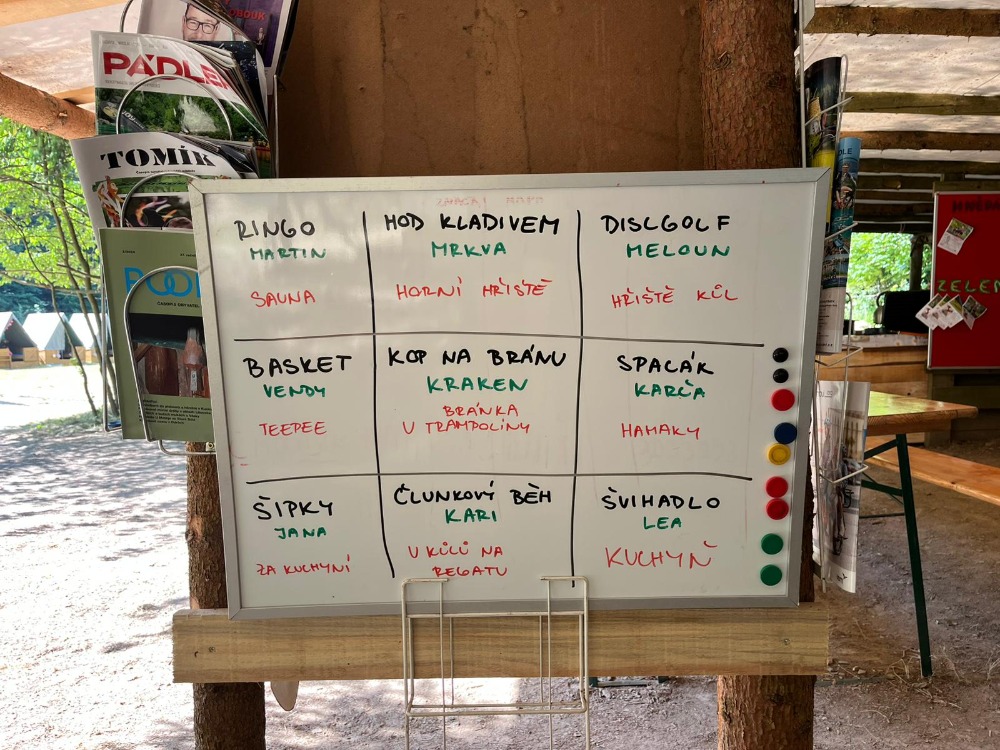 PÁDLE
TOMÍK
RINGO
MARTIN
SAUNA
HOD KLADIVEM
MRKVA
HORNÍ HŘIŠTĚ
DISLGOLF
MELOUN
HŘIŠTĚ KŮL
BASKET
VENDY
TEEPEE
KOP NA BRÁNU
KRAKEN
BRÁNKA
U TRAMPOLÍNY
SPACÁK
KARČA
HAMAKY
ŠIPKY
JANA
ZA KUCHYNÍ
ČLUNKOVÝ BĚH
KARI
U KŮLŮ NA
REGATU
ŠVIHADLO
LEA
KUCHYŇ